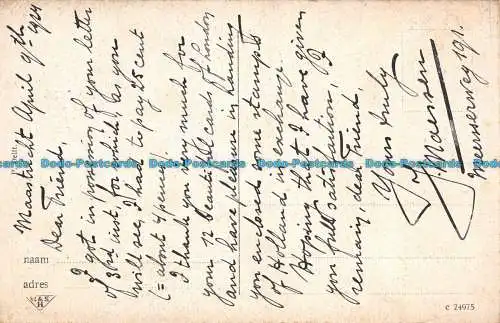 Maastricht April 9th 1924
Dear Friend,
I got in possession of your letter
of 23rd inst, for which, as you
will see, I had to pay 25 cent
(= about 4 pence)
I thank you very much for
your 12 beautiful cards of London
and have pleasure in handing
you enclosed some stamps
of Holland in exchange.
Hoping that I have given
you full satisfaction, I
remain, dear Friend,
Yours truly
J. Maessen
Meerssenerweg 191.
naam
adres
M&R
H
c 24975
Postcards Postcards Postcards Postcards Postcards Postcards Postcards